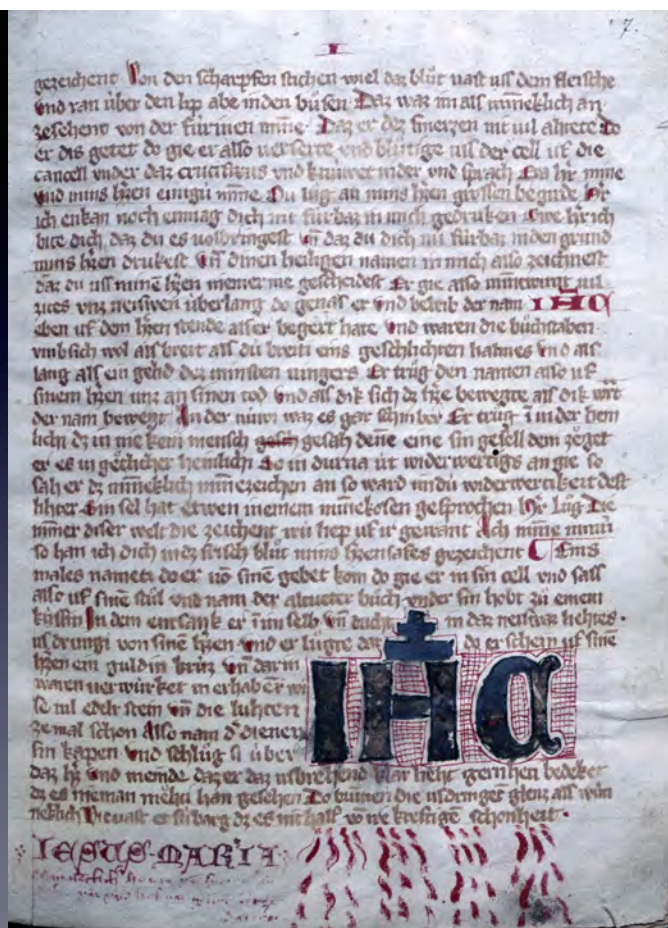 7.
I
gezeichent Von den scharpfen stichen wiel daz blůt vast uss dem fleische
vnd ran über den lip abe in den bůsen Daz waz im als minneklich an
zesehent von der fúrinen minne Daz er dez smerzen nit vil ahtete Do
er dis getet do gie er also verserte vnd blůtige uss der cell uf die
cancell vnder daz crucifixus vnd knúwet nider vnd sprach Eya hˀr mine
vnd mins hˀzen einigú mīne Nu lůg an mins hˀzen grossen begirde hˀr
ich enkan noch enmag dich nit fúrbaz in mich gedruken Owe hˀr ich
bite dich daz du es volbringest vn̄ daz du dich nu fúrbaz in den grund
mins hˀzen drukest vn̄ dinen heiligen namen in mich also zeichnest
daz du uss minē hˀzen niemer me gescheidest Er gie also minnewunt vil
zites vnz neiswen úberlang do genas er vnd beleib der nam IHC
eben uf dem hˀzen stende als er begert hate vnd waren die bůchstaben
vmb sich wol als breit als dú breiti eins geschlichten halmes vnd als
lang als ein gelid dez minsten vingers Er trůg den namen also uf
sinem hˀzen unz an sinen tod vnd als dik sich dz hˀze bewegte als dik wart
der nam bewegt In der núwi waz es gar schinber Er trůg in in der heim
lichi dz in nie kein mensch gesah denne eine sin gesell dem zoget
er es in gotlicher heimlichi So in dur na út widerwertigs an gie so
sah er dz minneklich minnezeichen an so ward im dú widerwertikeit dest
lihter Sin sel hat etwen in einem minnekosen gesprochen hˀr lůg Die
minner diser welt die zeichent irú liep uf ir gewant Ach minne minú
so han ich dich in dz frisch blůt mins hˀzensafes gezeichent Eins
males nameti do er vō sinē gebet kom do gie er in sin cell vnd sass
also uf sinē stůl vnd nam der altveter bůch vnder sin hobt zů einem
kússin In dem entsank er im selb vn̄ duht in daz neiswaz liehtes
us drungi von sinē hˀzen vnd er lůgte dar do erschein uf sinē
hˀzen ein guldin krúz vn̄ dar in
waren verwúrket in erhabēr wi
se vil edelr stein vn̄ die luhten
ze mal schon Also nam dˀ diener
sin kapen vnd schlůg si úber
IHC
daz hˀz vnd meinde daz er daz usbrehend klar lieht gern heti bedeket
dz es nieman mohti han gesehen Do brunnen die usdringet glenz als wun
neklich wie vast er si barg dz es nit half vō ire kreftigē schonheit
IESUS MARIA